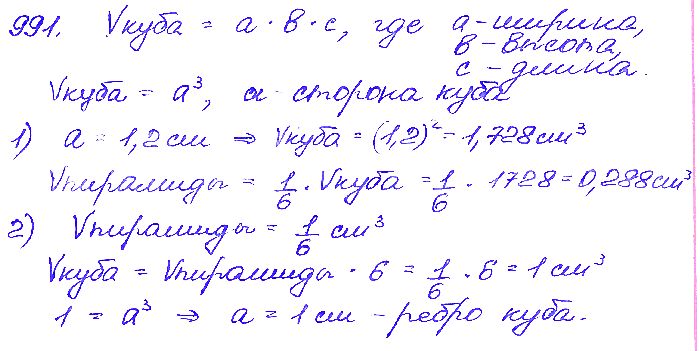 991. Vкуба = a · в · c, где a - ширина,
в - высота,
c - длина.
Vкуба = a³, a - сторона куба
1) a = 1,2 см ⇒ Vкуба = (1,2)² = 1,728 см³
Vпирамиды = 1/6 · Vкуба = 1/6 · 1728 = 0,288 см³
2) Vпирамиды = 1/6 см³
Vкуба = Vпирамиды · 6 = 1/6 · 6 = 1 см³
1 = a³ ⇒ a = 1 см - ребро куба.